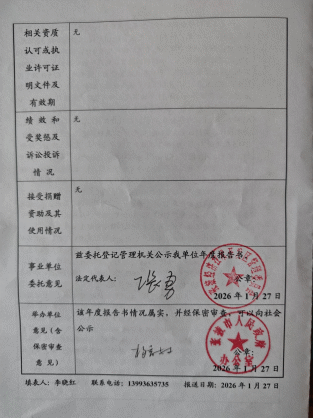 相关资质
认可或执
业许可证
明文件及
有效期
无
绩效和
受奖惩及
诉讼投诉
情况
无
接受捐赠
资助及其
使用情况
无
事业单位
委托意见
兹委托登记管理机关公示我单位年度报告书。
法定代表人：
公章：
2026年1月27日
举办单位
意见（含
保密审查
意见）
该年度报告书情况属实，并经保密审查，可以向社会
公示
公章：
2026年1月27日
填表人：李晓红 联系电话：13993635735 报送日期：2026年1月27日